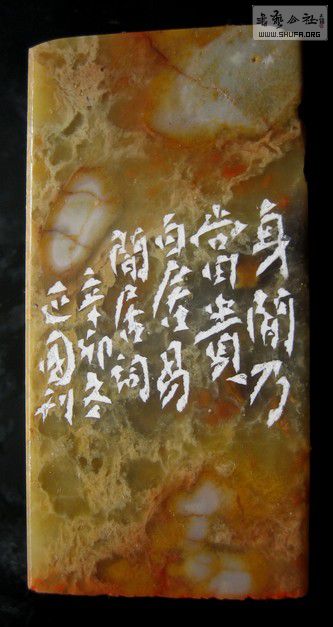 身閒乃
當貴
白居易
閒居詞
辛卯冬
正國刊
書藝公社
WWW.SHUFA.ORG